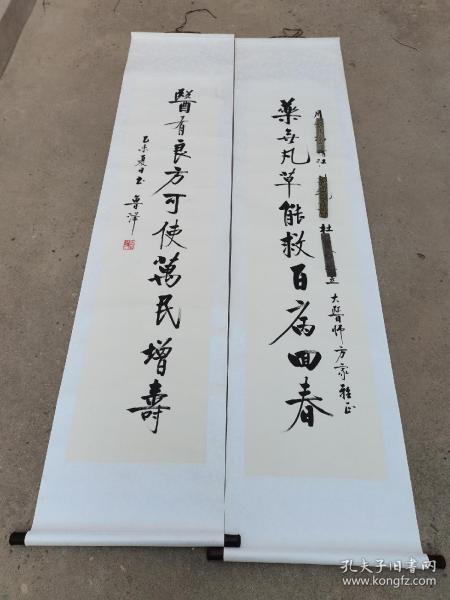 藥無凡草能救百病回春
杜
大醫師方家雅正
醫有良方可使萬民增壽
乙未夏日書
魯澤
孔夫子旧书网
www.kongfz.com